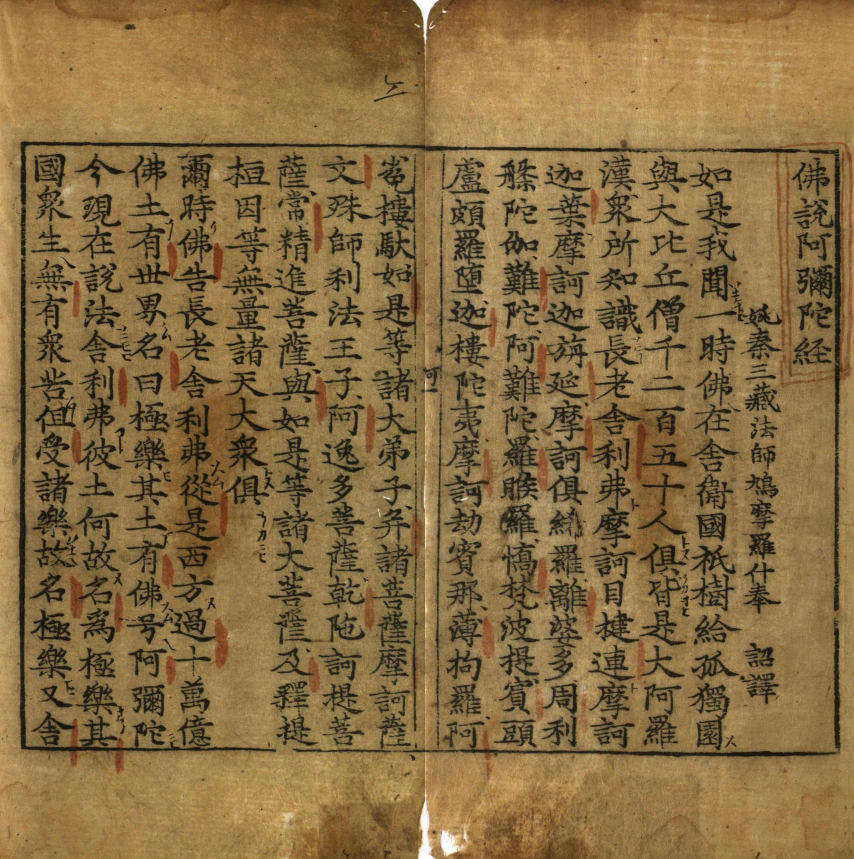 佛說阿彌陀経
姚秦三藏法師鳩摩羅什奉 詔譯
如是我聞一時佛在舎衛國祇樹給孤獨園
與大比丘僧千二百五十人俱皆是大阿羅
漢衆所知識長老舎利弗摩訶目揵連摩訶
迦葉摩訶迦旃延摩訶俱絺羅離婆多周利
槃陀伽難陀阿難陀羅睺羅憍梵波提賓頭
盧頗羅堕迦樓陀夷摩訶劫賓那薄拘羅阿
㝹樓馱如是等諸大弟子并諸菩薩摩訶薩
文殊師利法王子阿逸多菩薩乾陁訶提菩
薩常精進菩薩與如是等諸大菩薩及釋提
桓因等無量諸天大衆俱
爾時佛告長老舎利弗從是西方過十萬億
佛土有世界名曰極樂其土有佛号阿彌陀
今現在說法舎利弗彼土何故名爲極樂其
國衆生無有衆苦但受諸樂故名極樂又舎